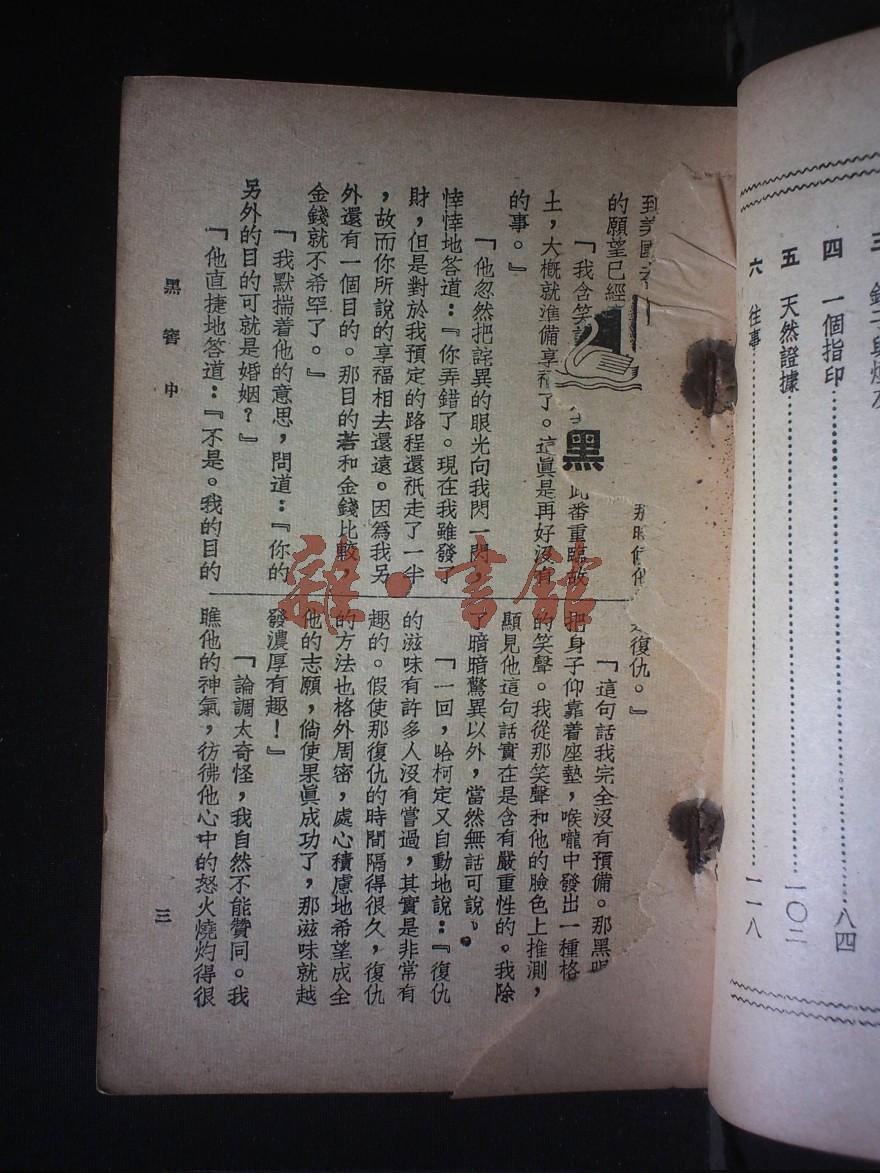 到美國
的願望已經
「我含笑
黑
此番重臨故
土，大槪就準備享福了。這眞是再好沒有
的事。』
「他忽然把詫異的眼光向我閃一閃，
悻悻地答道：『你弄錯了。現在我雖發了
財，但是對於我預定的路程還祇走了一半
，故而你所說的享福相去還遠。因爲我另
外還有一個目的。那目的若和金錢比較，
金錢就不希罕了。』
「我默揣着他的意思，問道：『你的
另外的目的可就是婚姻？』
「他直捷地答道：『不是。我的目的
復仇。』
「這句話我完全沒有預備。那黑
把身子仰靠着座墊，喉嚨中發出一種格
的笑聲。我從那笑聲和他的臉色上推測，
顯見他這句話實在是含有嚴重性的。我除
了暗暗驚異以外，當然無話可說。
「一回，哈柯定又自動地說：『復仇
的滋味有許多人沒有嘗過，其實是非常有
趣的。假使那復仇的時間隔得很久，復仇
的方法也格外周密，處心積慮地希望成全
他的志願，倘使果眞成功了，那滋味就越
發濃厚有趣！』
「論調太奇怪，我自然不能贊同。我
瞧他的神氣，彷彿他心中的怒火燒灼得很
黑窖中
三
雜·書館
四 一個指印……八四
五 天然證據……一〇二
六 往事……一一八